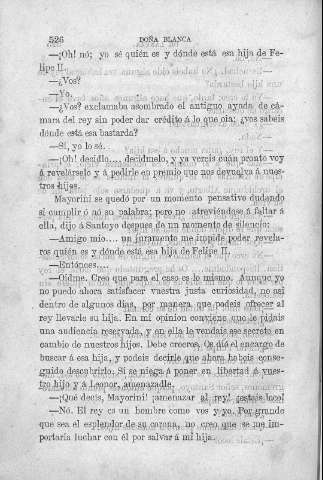 526
DOÑA BLANCA
—¡Oh! nó; yo sé quién es y dónde está esa hija de Fe-
lipe II.
—¿Vos?
—Yo.
—¿Vos? exclamaba asombrado el antiguo ayuda de cá-
mara del rey sin poder dar crédito á lo que oia; ¿vos sabeis
dónde está esa bastarda?
—Sí, yo lo sé.
—¡Oh! decidlo.... decídmelo, y ya vereis cuán pronto voy
á revelárselo y á pedirle en premio que nos devuelva á nues-
tros hijos.
Mayorini se quedó por un momento pensativo dudando
si cumplir ó nó su palabra; pero no atreviéndose á faltar á
ella, dijo á Santoyo despues de un momento de silencio:
—Amigo mio.... un juramento me impide poder revela-
ros quién es y dónde está esa hija de Felipe II.
—Entónces....
—Oidme. Creo que para el caso es lo mismo. Aunque yo
no puedo ahora satisfacer vuestra justa curiosidad, no así
dentro de algunos dias, por manera que podeis ofrecer al
rey llevarle su hija. En mi opinion conviene que le pidais
una audiencia reservada, y en ella le vendais ese secreto en
cambio de nuestros hijos. Debe creeros. Os dió el encargo de
buscar á esa hija, y podeis decirle que ahora habeis conse-
guido descubrirlo. Si se niega á poner en libertad á vues-
tro hijo y á Leonor, amenazadle.
—¡Qué decis, Mayorini! ¡amenazar al rey! ¿estais loco?
—Nó. El rey es un hombre como vos y yo. Por grande
que sea el esplendor de su corona, no creo que se me im-
portaria luchar con él por salvar á mi hija.